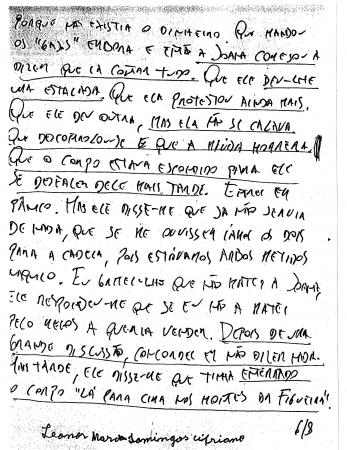 PORQUE NÃO EXISTIA O DINHEIRO QUE MANDOU
OS "GAJOS" EMBORA E ENTÃO A JOANA COMEÇOU A
DIZER QUE IA CONTAR TUDO. QUE ELE DEU-LHE
UMA ESTALADA. QUE ELA PROTESTOU AINDA MAIS.
QUE ELE DEU OUTRA, MAS ELA NÃO SE CALAVA
QUE DESCONTROLOU-SE E QUE A MIÚDA MORRERA.
QUE O CORPO ESTAVA ESCONDIDO PARA ELE
SE DESFAZER DELE MAIS TARDE. ENTREI EM
PÂNICO. MAS ELE DISSE-ME QUE JÁ NÃO SERVIA
DE NADA, QUE SE ME OUVISSEM ÍAMOS OS DOIS
PARA A CADEIA, POIS ESTÁVAMOS AMBOS METIDOS
NAQUILO. EU GRITEI-LHE QUE NÃO MATEI A JOANA,
ELE RESPONDEU-ME QUE SE EU NÃO A MATEI
PELO MENOS A QUERIA VENDER. DEPOIS DE UMA
GRANDE DISCUSSÃO, CONCORDEI EM NÃO DIZER NADA.
MAIS TARDE, ELE DISSE-ME QUE TINHA ENTERRADO
O CORPO "LÁ PARA CIMA NOS MONTES DA FIGUEIRA".
6/8
Leonor Maria Domingos Cipriano